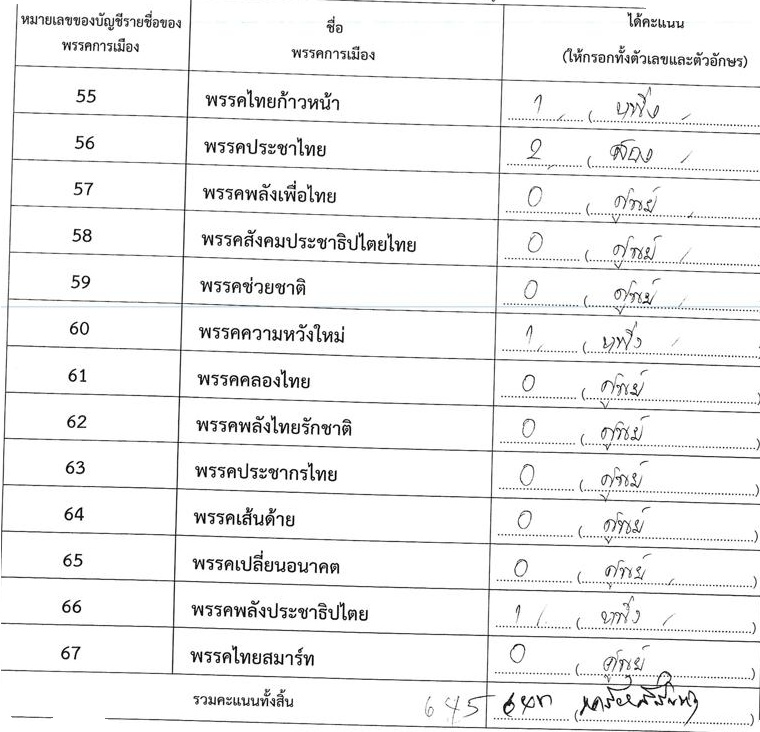 หมายเลขของบัญชีรายชื่อของ พรรคการเมือง ชื่อ พรรคการเมือง ได้คะแนน (ให้กรอกทั้งตัวเลขและตัวอักษร)
55 พรรคไทยก้าวหน้า 1 (หนึ่ง
56 พรรคประชาไทย 2 (สอง
57 พรรคพลังเพื่อไทย 0 (ศูนย์
58 พรรคสังคมประชาธิปไตยไทย 0 (ศูนย์
59 พรรคช่วยชาติ 0 (ศูนย์
60 พรรคความหวังใหม่ 1 (หนึ่ง )
61 พรรคคลองไทย 0 (ศูนย์ )
62 พรรคพลังไทยรักชาติ 0 (ศูนย์ )
63 พรรคประชากรไทย 0 (ศูนย์ )
64 พรรคเส้นด้าย 0 (ศูนย์ )
65 พรรคเปลี่ยนอนาคต 0 (ศูนย์ )
66 พรรคพลังประชาธิปไตย 1 (หนึ่ง )
67 พรรคไทยสมาร์ท 0 (ศูนย์ )
รวมคะแนนทั้งสิ้น 645